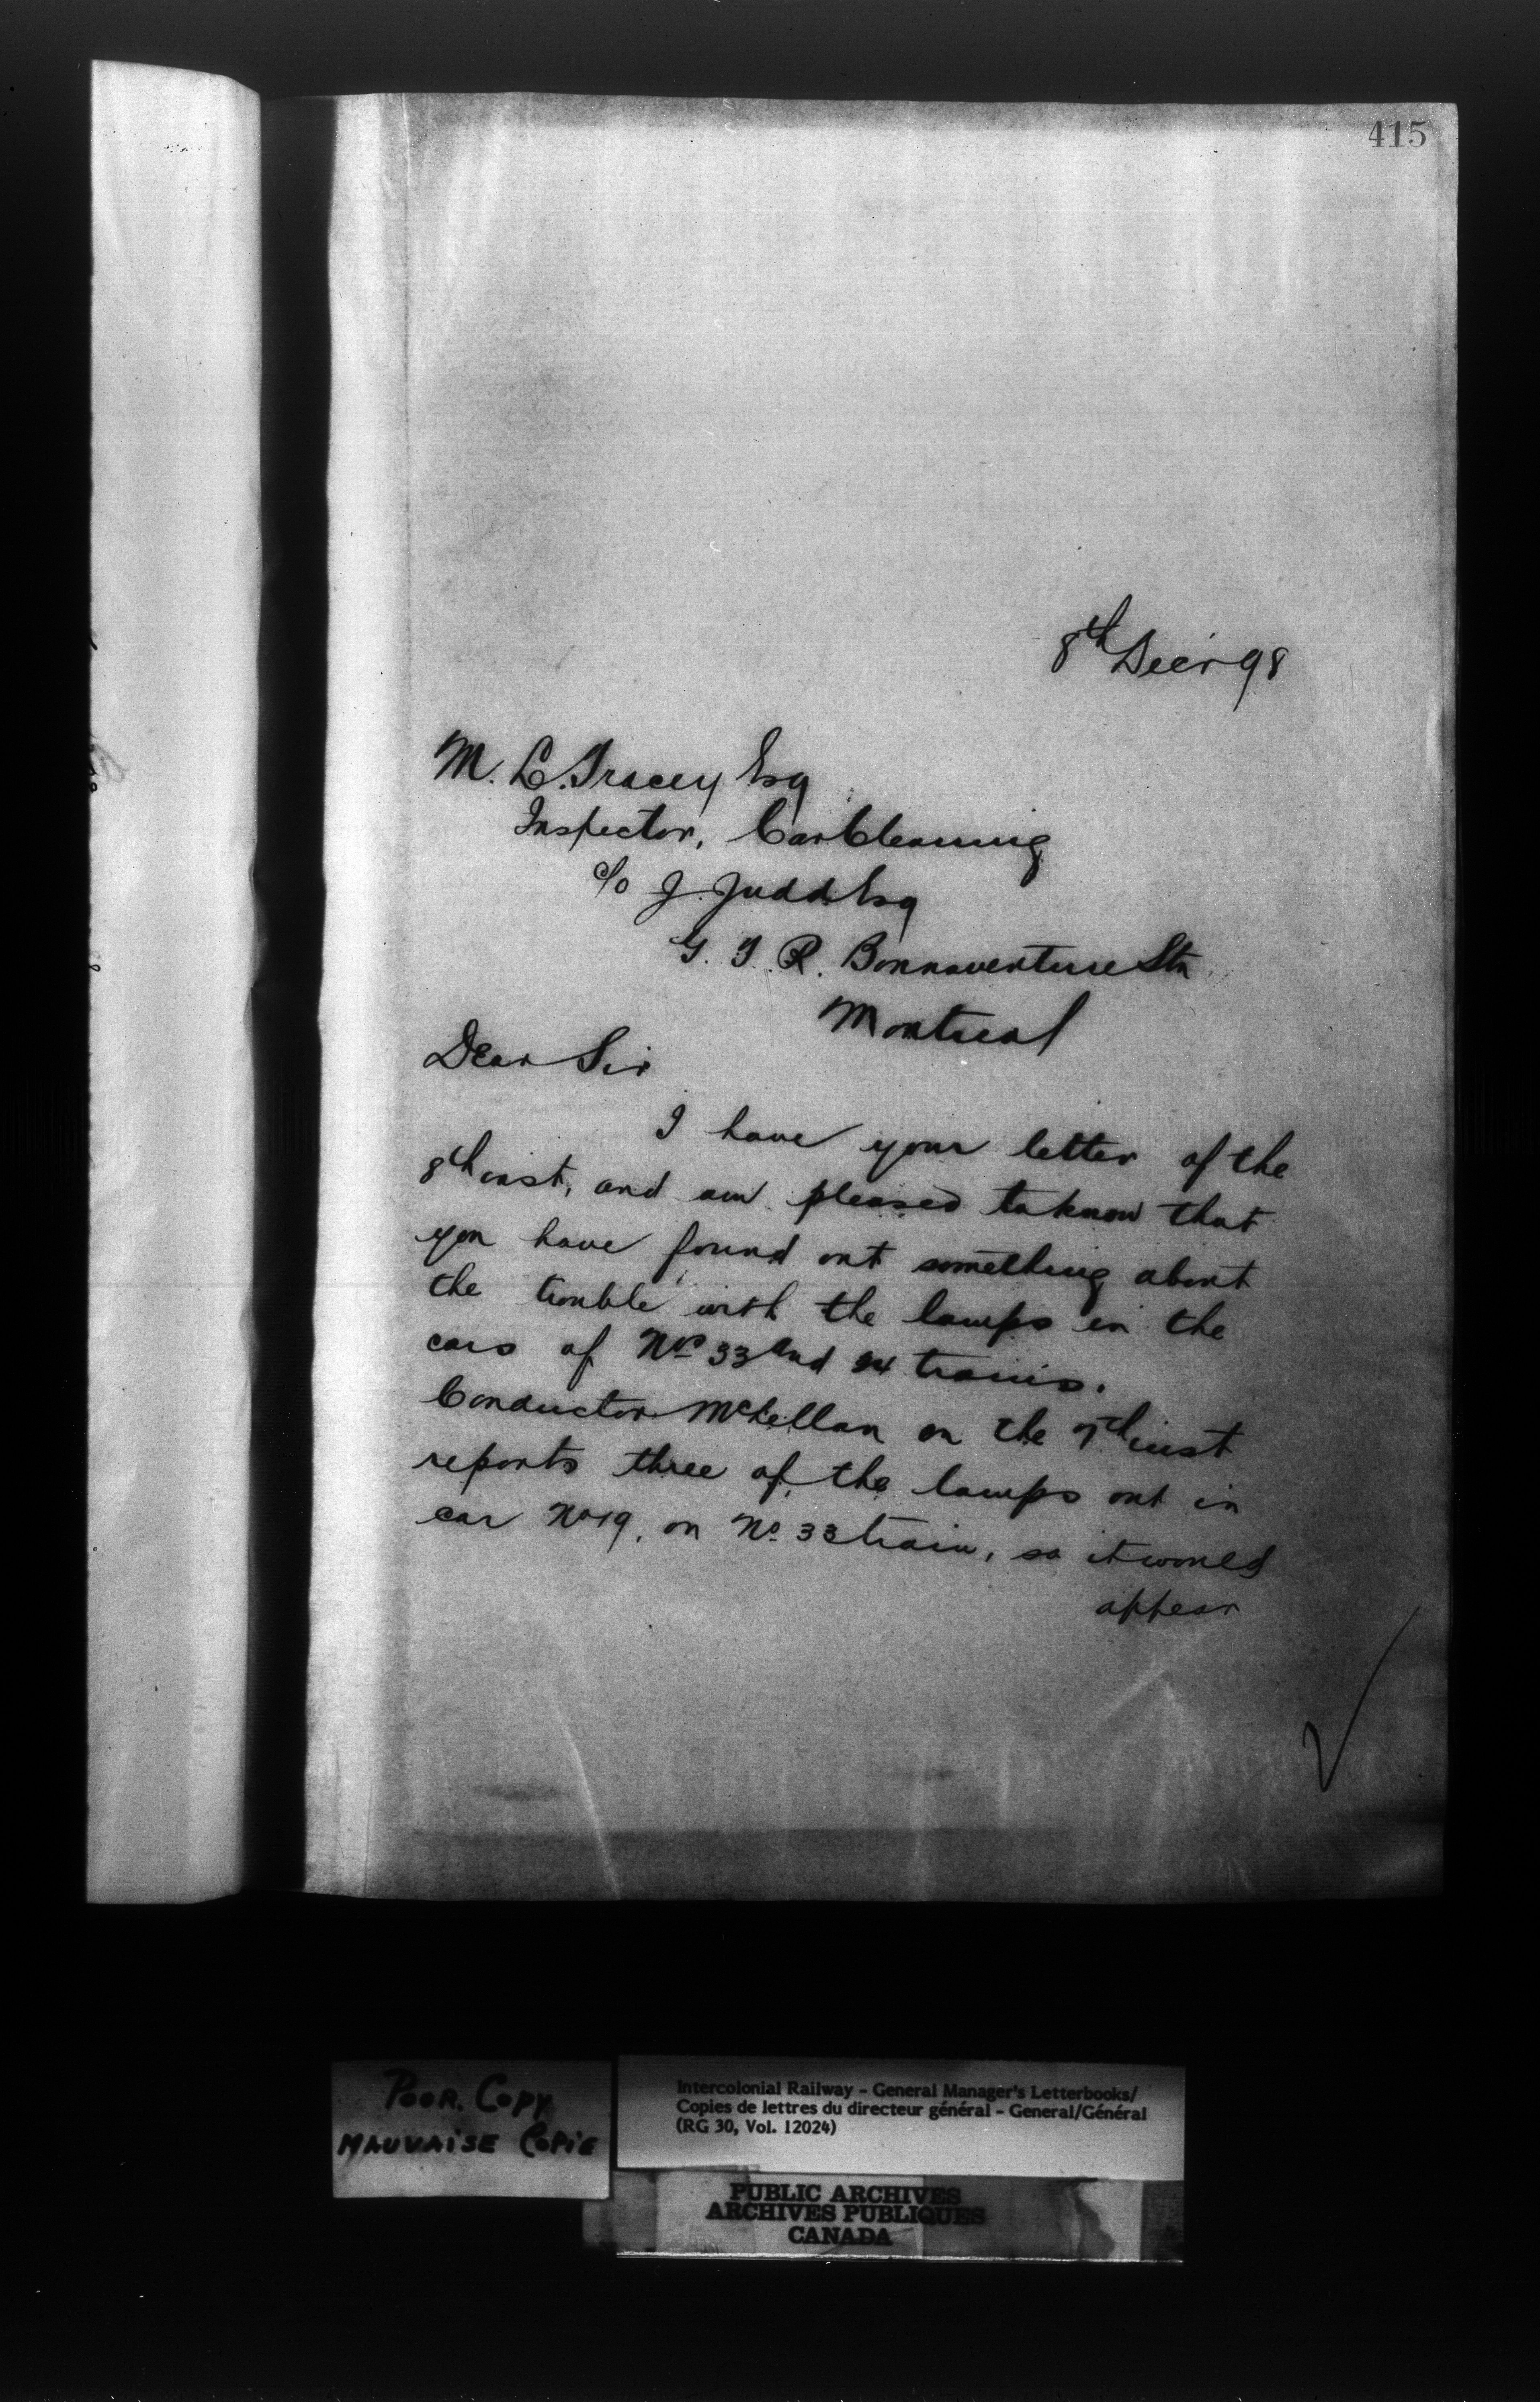 415
8th Decr 98
M. L. Tracey Esq
Inspector, Car Cleaning
c/o J. Judd Esq
G. T. R. Bonnaventure Stn
Montreal
Dear Sir
I have your letter of the
8th inst, and am pleased to know that
you have found out something about
the trouble with the lamps in the
cars of Nos 33 and 34 trains.
Conductor McLellan on the 7th inst
reports three of the lamps out in
car No 19, on No 33 train, so it would
appear
Poor Copy
Mauvaise Copie
Intercolonial Railway - General Manager's Letterbooks/
Copies de lettres du directeur général - General/Général
(RG 30, Vol. 12024)
PUBLIC ARCHIVES
ARCHIVES PUBLIQUES
CANADA